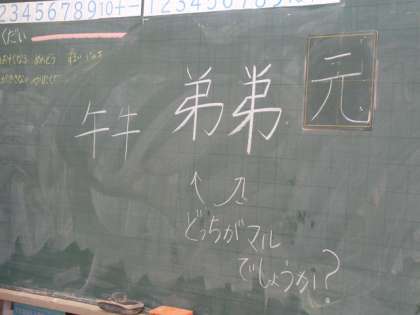 2 3 4 5 6 7 8 9 10 + −
1 2 3 4 5 6 7 8 9
ください
午 牛 弟 弟 元
↑ ↑
どっちがマル
でしょうか?